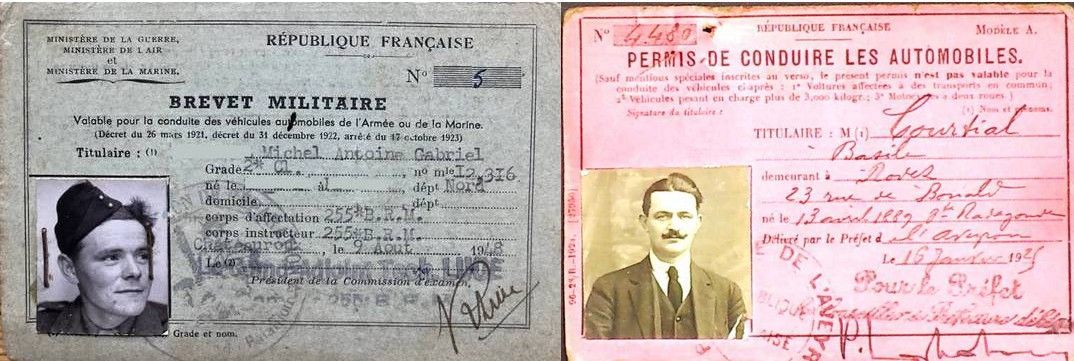 MINISTÈRE DE LA GUERRE,
MINISTÈRE DE L'AIR
et
MINISTÈRE DE LA MARINE.
RÉPUBLIQUE FRANÇAISE
N° 5
BREVET MILITAIRE
Valable pour la conduite des véhicules automobiles de l'Armée ou de la Marine.
(Décret du 26 mars 1921, décret du 31 décembre 1922, arrêté du 17 octobre 1923)
Titulaire : (1) Michel Antoine Gabriel
Grade 2° Cl. n° mle 12.316
né le à dépt Nord
domicile dépt
corps d'affectation 255°B.R.M.
corps instructeur 255°B.R.M.
Chateauroux, le 9 Aout 1948
Le (2)
Président de la Commission d'examen,
Grade et nom.
N° 4480
RÉPUBLIQUE FRANÇAISE
MODÈLE A.
PERMIS DE CONDUIRE LES AUTOMOBILES.
(Sauf mentions spéciales inscrites au verso, le présent permis n'est pas valable pour la
conduite des véhicules ci-après : 1° Voitures affectées à des transports en commun;
2° Véhicules pesant en charge plus de 3,000 kilogr.; 3° Motocycles à deux roues.)
Signature du titulaire :
(1) Nom et prénoms.
TITULAIRE : M (1) Courtial
Basile
demeurant à Rodez
23 rue de Bonald
né le 13 avril 1889 Ste Radegonde
Délivré par le Préfet d l'Aveyron
Le 16 Janvier 1925
Pour le Préfet